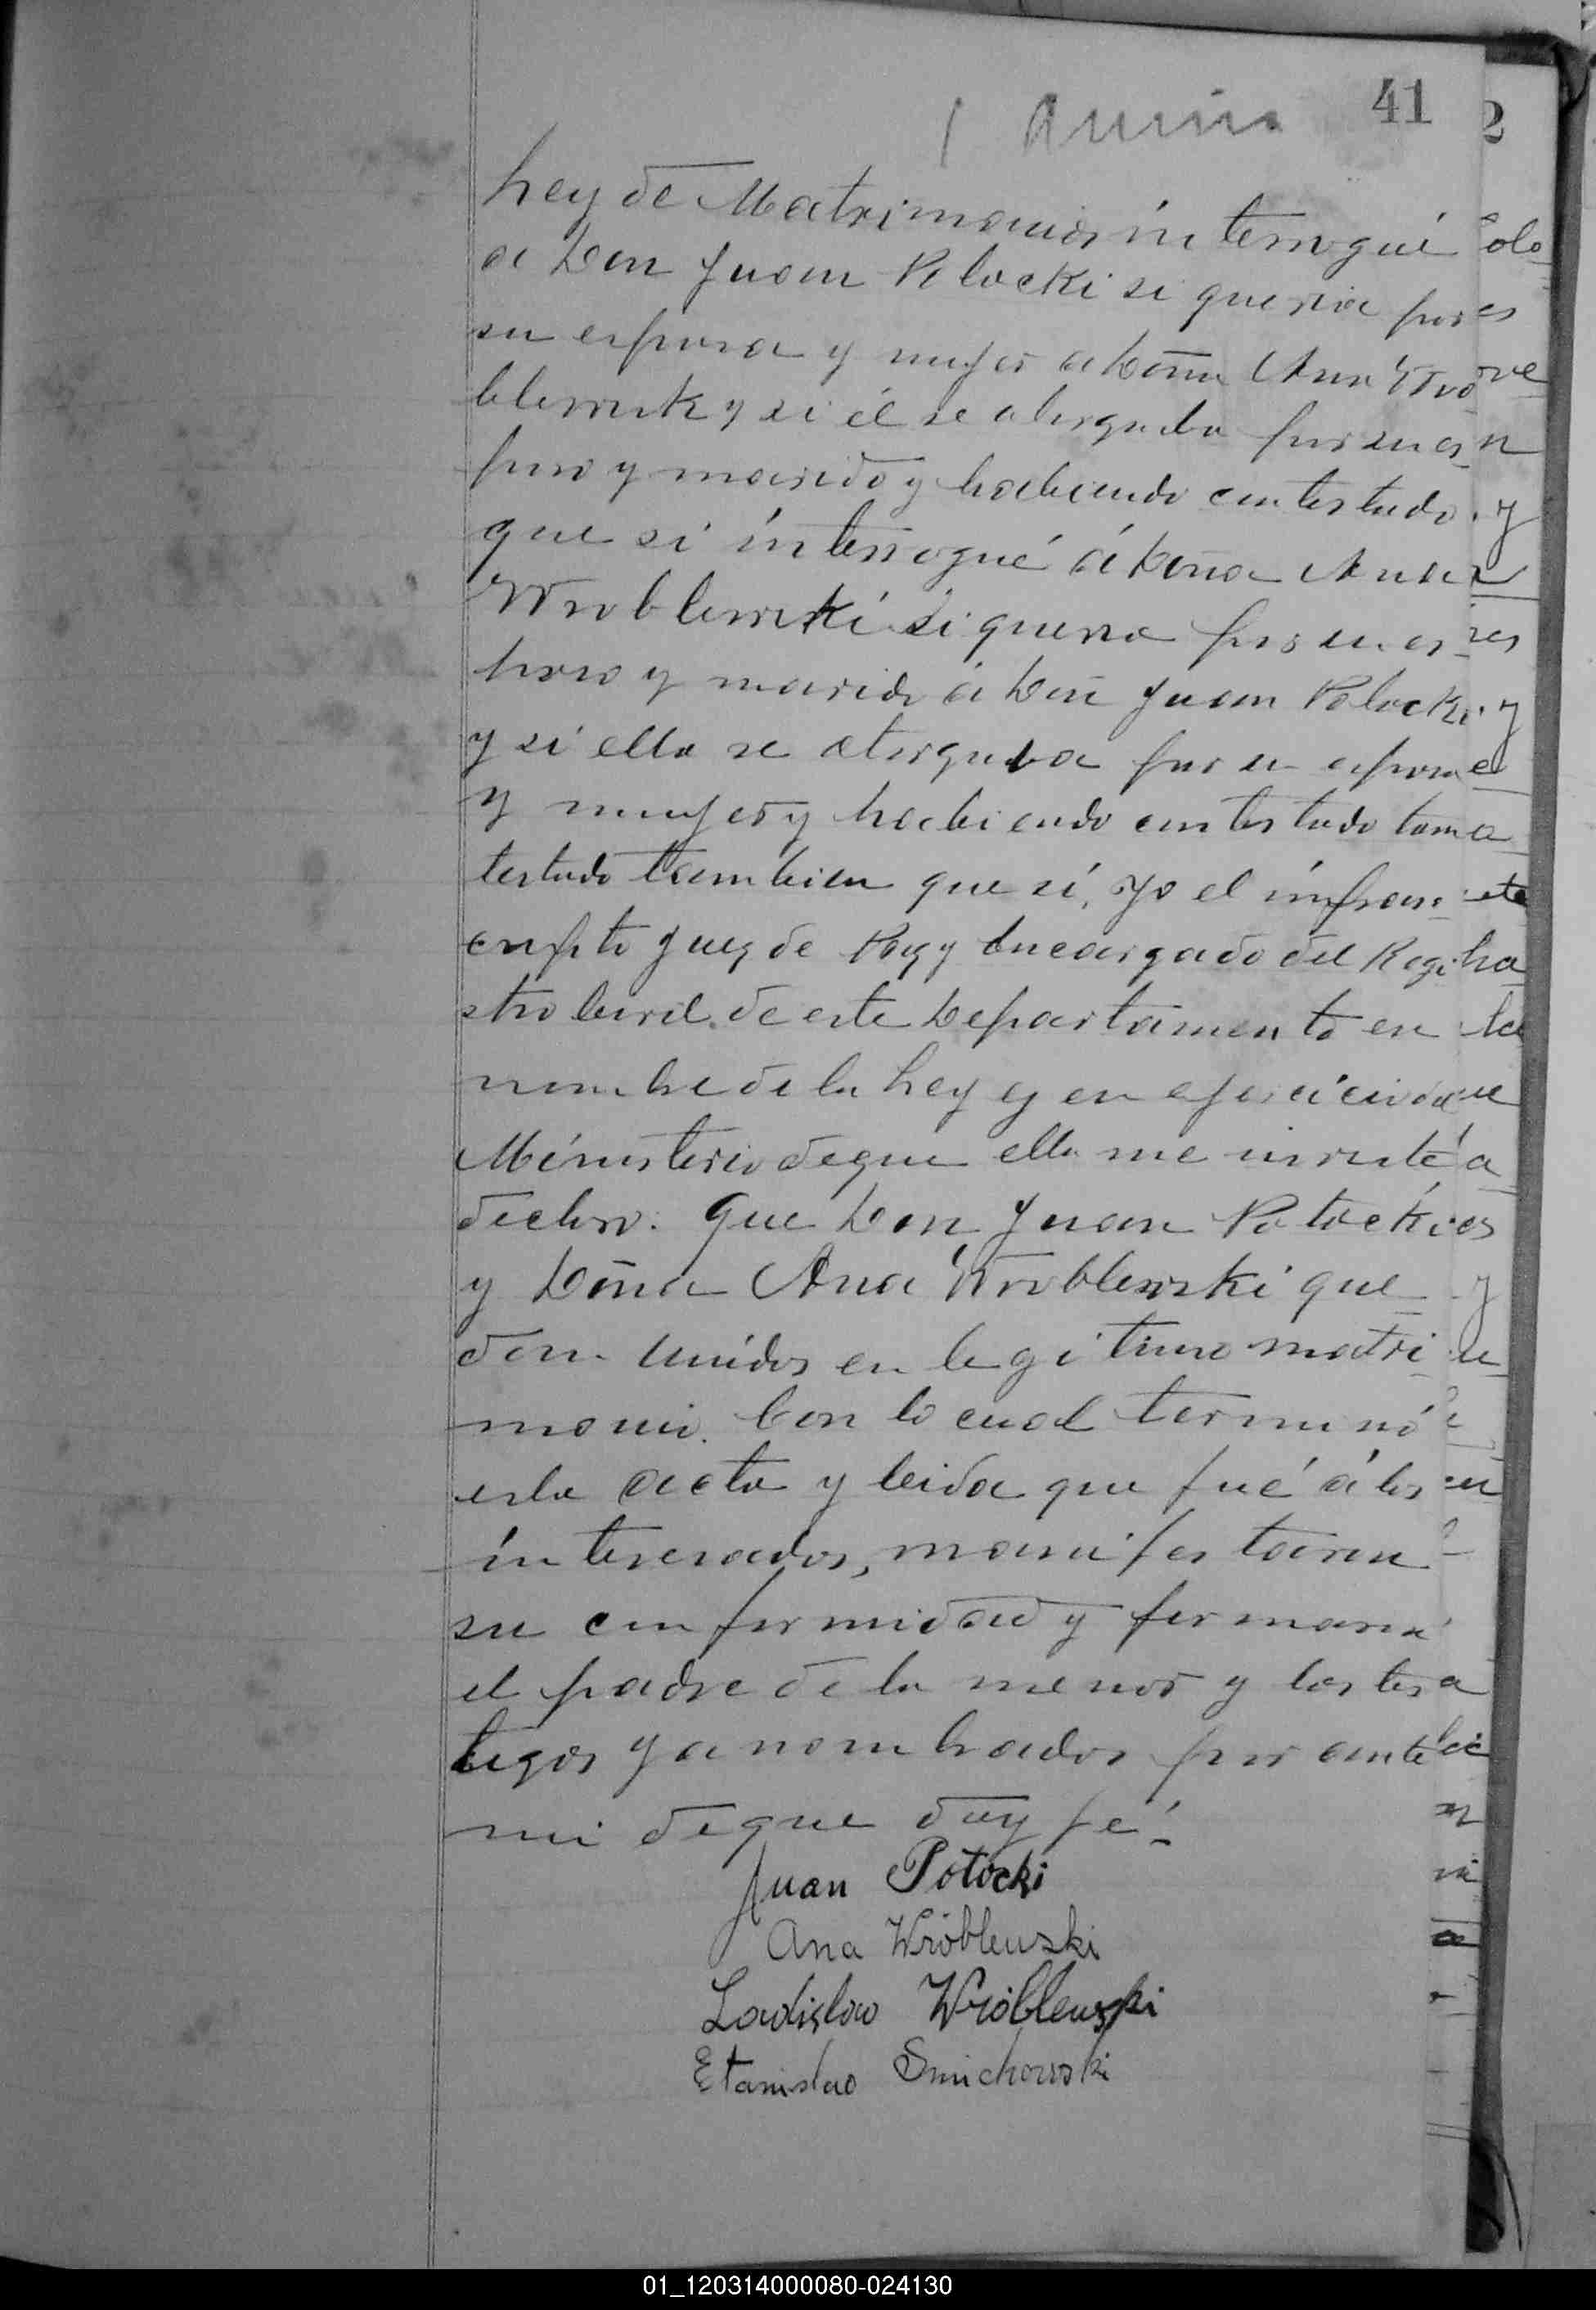 41
Ley de Matrimonios interrogué
a Don Juan Potocki si queria por
su esposa y mujer a Doña Ana Wro
blewsk y si él se otorgaba por su es
poso y marido y habiendo contestado
que si interrogué á Doña Ana
Wroblewski si queria por su es
poso y marido á Don Juan Potocki
y si ella se otorgaba por su esposa
y mujer y habiendo contestado com
testado tambien que sí, yo el infras
cripto Juez de Paz y Encargado del Regi
stro Civil de este Departamento en
nombre de la Ley y en ejercicio del
Ministerio de que ella me inviste
declaro: Que Don Juan Potocki
y Doña Ana Wroblewski que
dan unidos en legitimo matri
monio. Con lo cual terminó
esta acta y leida que fué á los
interesados, manifestaron
su conformidad y firmaron
el padre de la menor y los tes
tigos ya nombrados por ante
mi de que doy fé.
Juan Potocki
Ana Wróblewski
Ladislao Wróblewski
Etanislao Smichowski
01_120314000080-024130